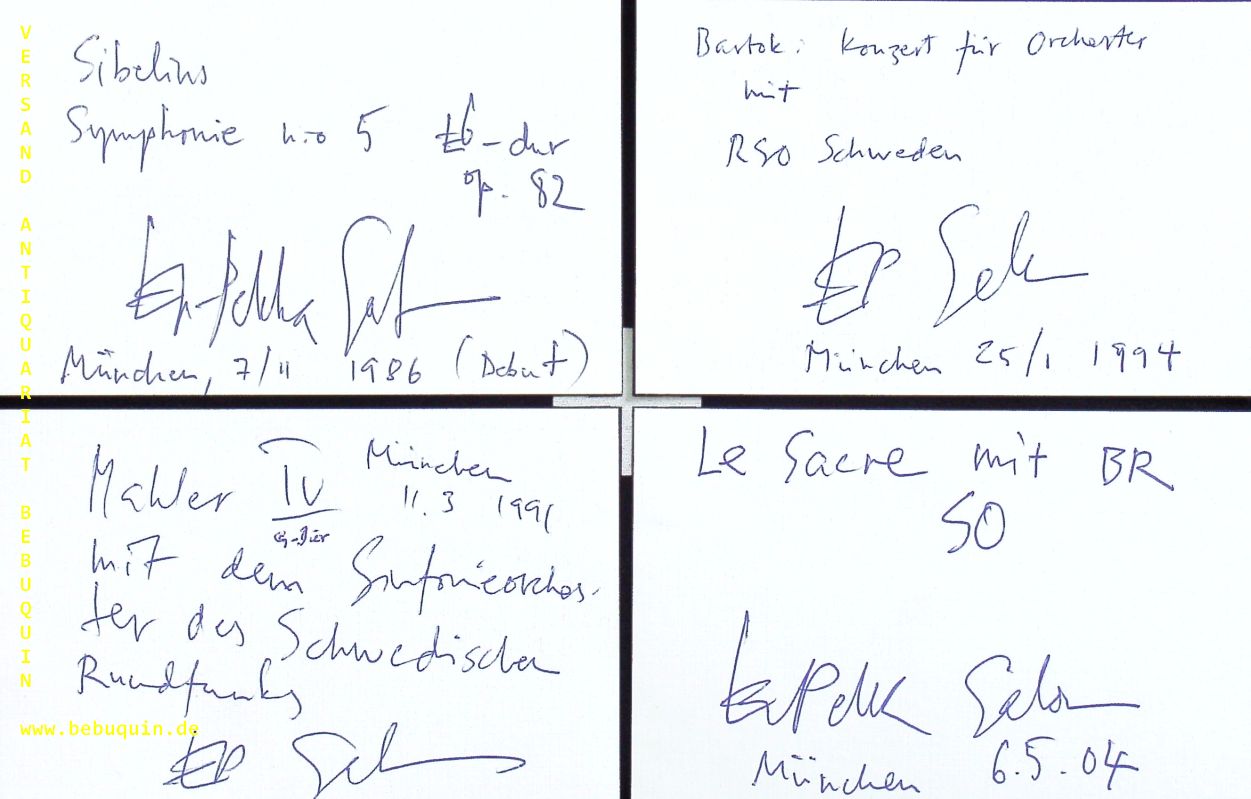 VERSAND ANTIQUARIAT BEBUQUIN
www.bebuquin.de
Sibelius
Symphonie n:o 5 Eb-dur
op. 82
Esa-Pekka Sal
München, 7/11 1986 (Debut)
Bartok: Konzert für Orchester
mit
RSO Schweden
EP Sal
München 25/1 1994
Mahler IV München
G-Dur 11.3 1991
mit dem Sinfonieorches-
ter des Schwedischen
Rundfunks
EP Sal
Le Sacre mit BR
SO
Esa-Pekka Salonen
München 6.5.04